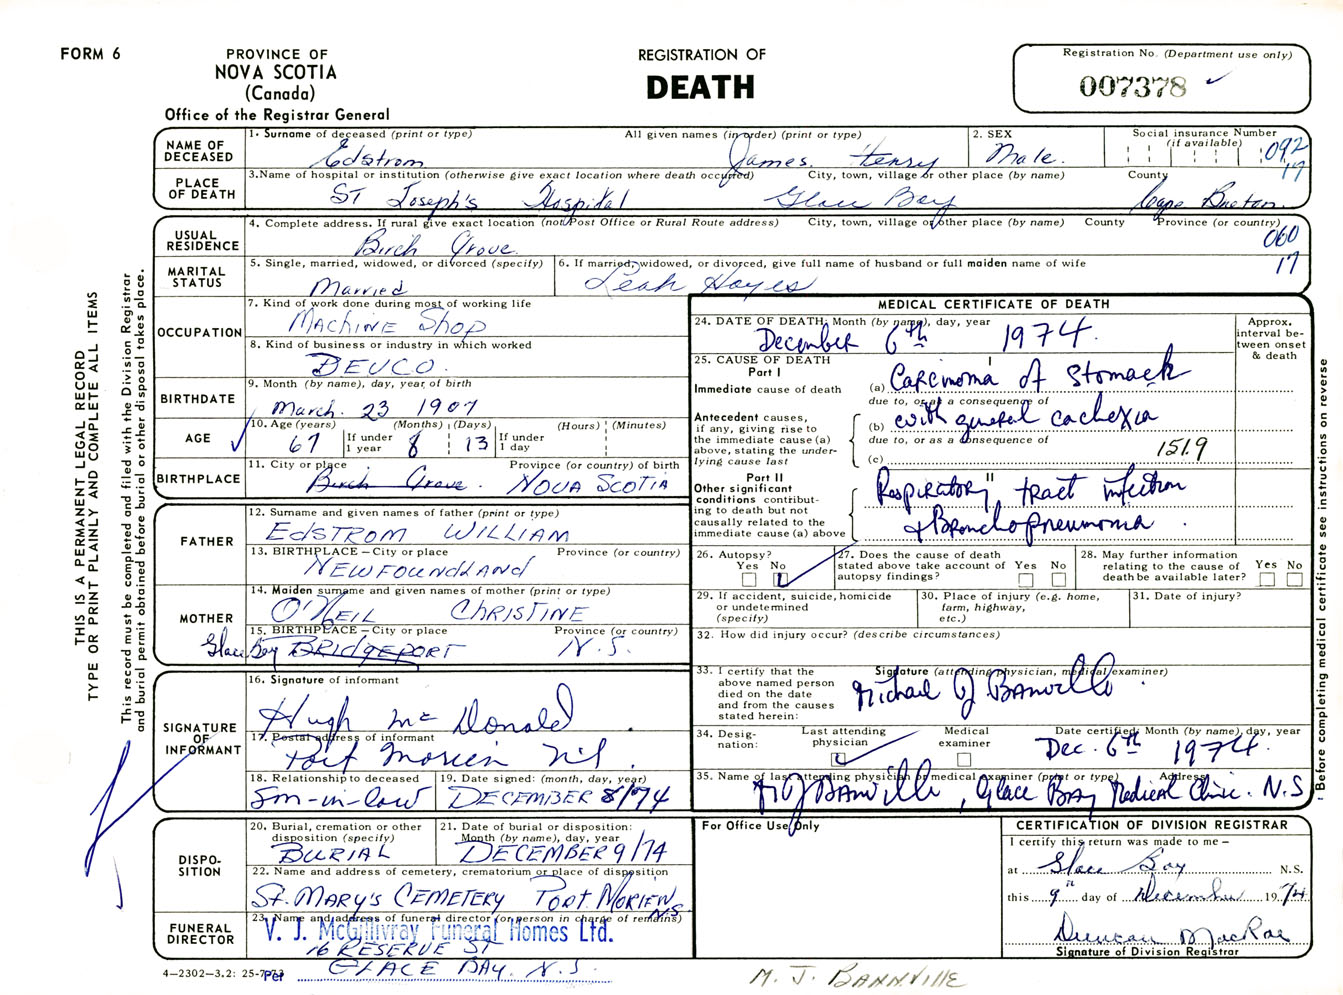 FORM 6
PROVINCE OF
NOVA SCOTIA
(Canada)
Office of the Registrar General
REGISTRATION OF
DEATH
Registration No. (Department use only)
007378 ✓
NAME OF DECEASED
1. Surname of deceased (print or type) All given names (in order) (print or type)
Edstrom James Henry
2. SEX
Male.
Social insurance Number
(if available)
092
17
PLACE OF DEATH
3. Name of hospital or institution (otherwise give exact location where death occurred) City, town, village or other place (by name) County
ST Joseph's Hospital Glace Bay Cape Breton.
USUAL RESIDENCE
4. Complete address. If rural give exact location (not Post Office or Rural Route address) City, town, village or other place (by name) County Province (or country)
Birch Grove. 060
17
MARITAL STATUS
5. Single, married, widowed, or divorced (specify)
Married
6. If married, widowed, or divorced, give full name of husband or full maiden name of wife
Leah Hayes
OCCUPATION
7. Kind of work done during most of working life
MACHINE SHOP
8. Kind of business or industry in which worked
DEVCO.
BIRTHDATE
9. Month (by name), day, year of birth
March. 23 1907
AGE ✓
10. Age (years) (Months) (Days) (Hours) (Minutes)
67 If under 1 year 8 13 If under 1 day
BIRTHPLACE
11. City or place Province (or country) of birth
Birch Grove. NOVA SCOTIA
FATHER
12. Surname and given names of father (print or type)
EDSTROM WILLIAM
13. BIRTHPLACE – City or place Province (or country)
NEWFOUNDLAND
MOTHER
14. Maiden surname and given names of mother (print or type)
O'NEIL CHRISTINE
15. BIRTHPLACE – City or place Province (or country)
Glace Bay BRIDGEPORT N.S.
SIGNATURE OF INFORMANT
16. Signature of informant
Hugh Mc Donald
17. Postal address of informant
Port Morien N.S.
18. Relationship to deceased
Son-in-law
19. Date signed: (month, day, year)
DECEMBER 8/74
DISPO-
SITION
20. Burial, cremation or other disposition (specify)
BURIAL
21. Date of burial or disposition: Month (by name), day, year
DECEMBER 9/74
22. Name and address of cemetery, crematorium or place of disposition
ST. MARY'S CEMETERY PORT MORIEN
N.S.
FUNERAL DIRECTOR
23. Name and address of funeral director (or person in charge of remains)
V. J. McGillivray Funeral Homes Ltd.
16 RESERVE ST
Per GLACE BAY. N.S.
4–2302–3.2: 25-7-73
MEDICAL CERTIFICATE OF DEATH
24. DATE OF DEATH: Month (by name), day, year
December 6th 1974.
Approx. interval be-
tween onset & death
25. CAUSE OF DEATH
Part I
I
Immediate cause of death (a) Carcinoma of Stomach
due to, or as a consequence of
Antecedent causes, if any, giving rise to the immediate cause (a) above, stating the under-
lying cause last
(b) with general cachexia
due to, or as a consequence of
(c) 151.9
Part II
II
Other significant conditions contribut-
ing to death but not causally related to the immediate cause (a) above
Respiratory tract infection
& Bronchopneumonia.
26. Autopsy?
Yes No ✓
27. Does the cause of death stated above take account of autopsy findings?
Yes No
28. May further information relating to the cause of death be available later?
Yes No
29. If accident, suicide, homicide or undetermined (specify)
30. Place of injury (e.g. home, farm, highway, etc.)
31. Date of injury?
32. How did injury occur? (describe circumstances)
33. I certify that the above named person died on the date and from the causes stated herein:
Signature (attending physician, medical examiner)
Michael J Banville
34. Desig-
nation:
Last attending physician ✓
Medical examiner
Date certified: Month (by name), day, year
Dec. 6th 1974.
35. Name of last attending physician or medical examiner (print or type) Address
MJ BANVILLE, Glace Bay Medical Clinic. N.S
For Office Use Only
CERTIFICATION OF DIVISION REGISTRAR
I certify this return was made to me –
at Glace Bay N.S.
this 9th day of December 1974
Duncan MacRae
Signature of Division Registrar
M. J. BANNVILLE
THIS IS A PERMANENT LEGAL RECORD
TYPE OR PRINT PLAINLY AND COMPLETE ALL ITEMS
This record must be completed and filed with the Division Registrar
and burial permit obtained before burial or other disposal takes place.
Before completing medical certificate see instructions on reverse